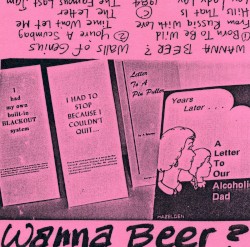 WANNA BEER? Walls of Genius
① Born To Be Wild ② You're A Scumbag
From Russia With Love Time Won't Let Me
That Is The Letter
© 1984 The Famous Last Jam
I
had
my own
built-in
BLACKOUT
system
I HAD TO
STOP
BECAUSE I
COULDN'T
QUIT...
Letter
To A
Pin Puller
Years
Later . . .
A
Letter
To Our
Alcoholic
Dad
HAZELDEN
Wanna Beer?